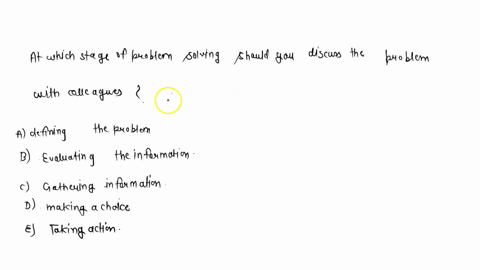 At which stage of problem solving should you discuss the problem
with colleagues ?
A) defining the problem
B) Evaluating the information.
C) Gathering information.
D) making a choice
E) Taking action.